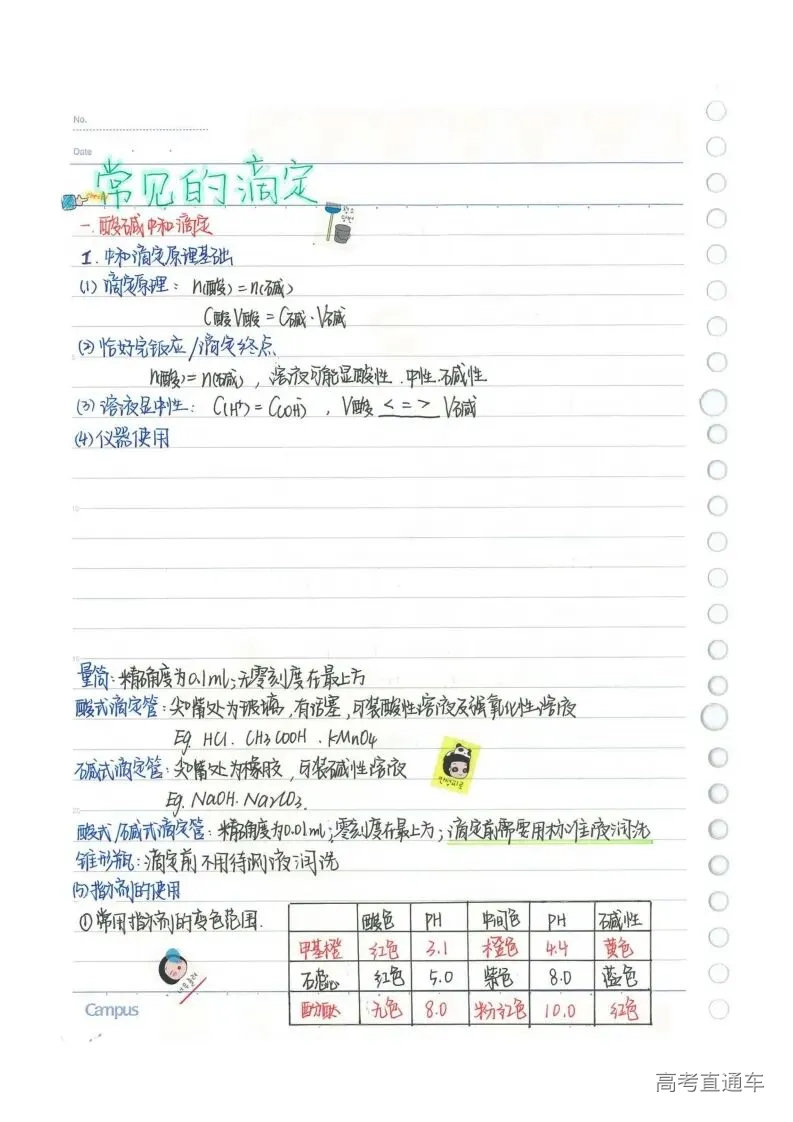 No.
Date
常见的滴定
一.酸碱中和滴定
I.中和滴定原理基础
(1)滴定原理：n(酸)=n(碱)
C酸V酸=C碱·V碱
(2)恰好完饭应/滴定终点
n(酸)=n(碱)，溶液可能显酸性.中性.碱性
(3)溶液显中性：C(H⁺)=C(OH⁻)，V酸 < = > V碱
(4)仪器使用
10
15
量筒：精确度为0.1ml;无零刻度在最上方
酸式滴定管：尖嘴处为玻璃,有活塞,可装酸性溶液及强氧化性溶液
Eg. HCl. CH3COOH. KMnO4
碱式滴定管：尖嘴处为橡胶,可装碱性溶液
Eg. NaOH. Na2CO3.
20
酸式/碱式滴定管：精确度为0.01ml;零刻度在最上方;滴定前需要用标准液润洗
锥形瓶：滴定前不用待测液润洗
(5)指示剂的使用
①常用指示剂的变色范围.
酸色 PH 中间色 PH 碱性
甲基橙 红色 3.1 橙色 4.4 黄色
石蕊 红色 5.0 紫色 8.0 蓝色
酚酞 无色 8.0 粉红色 10.0 红色
Campus
高考直通车